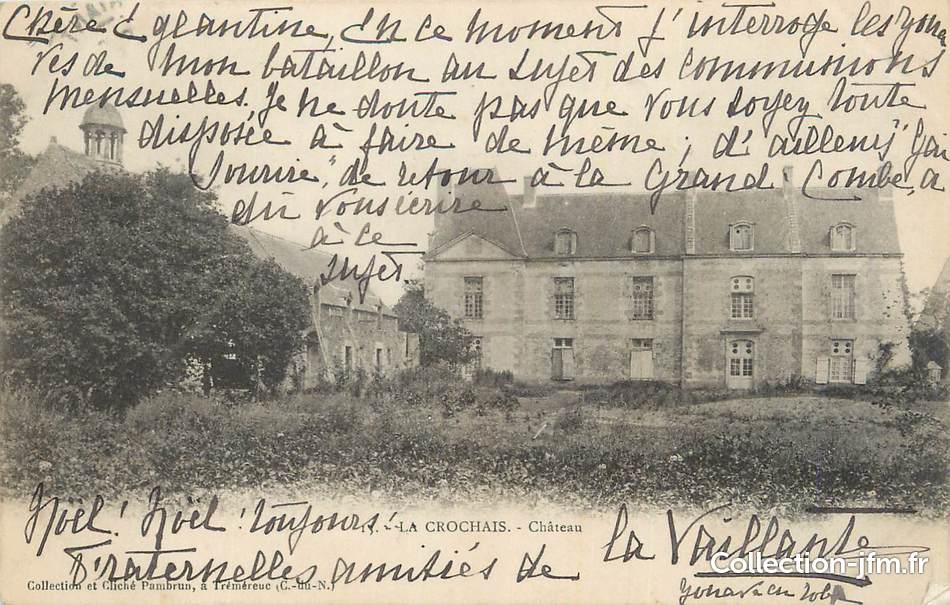 Chère Eglantine, En ce moment j'interroge les zoua
ves de mon bataillon au sujet des communions
mensuelles. Je ne doute pas que vous soyez toute
disposée à faire de même ; d'ailleurs "Gai
Sourire", de retour à la Grand Combe, a
dû vous écrire
à ce
sujet.
LA CROCHAIS. - Château
Noël ! Noël ! toujours !
Fraternelles amitiés de la Vaillante
Collection et Cliché Pambrun, à Tréméreuc (C.-du-N.)
Collection-jfm.fr